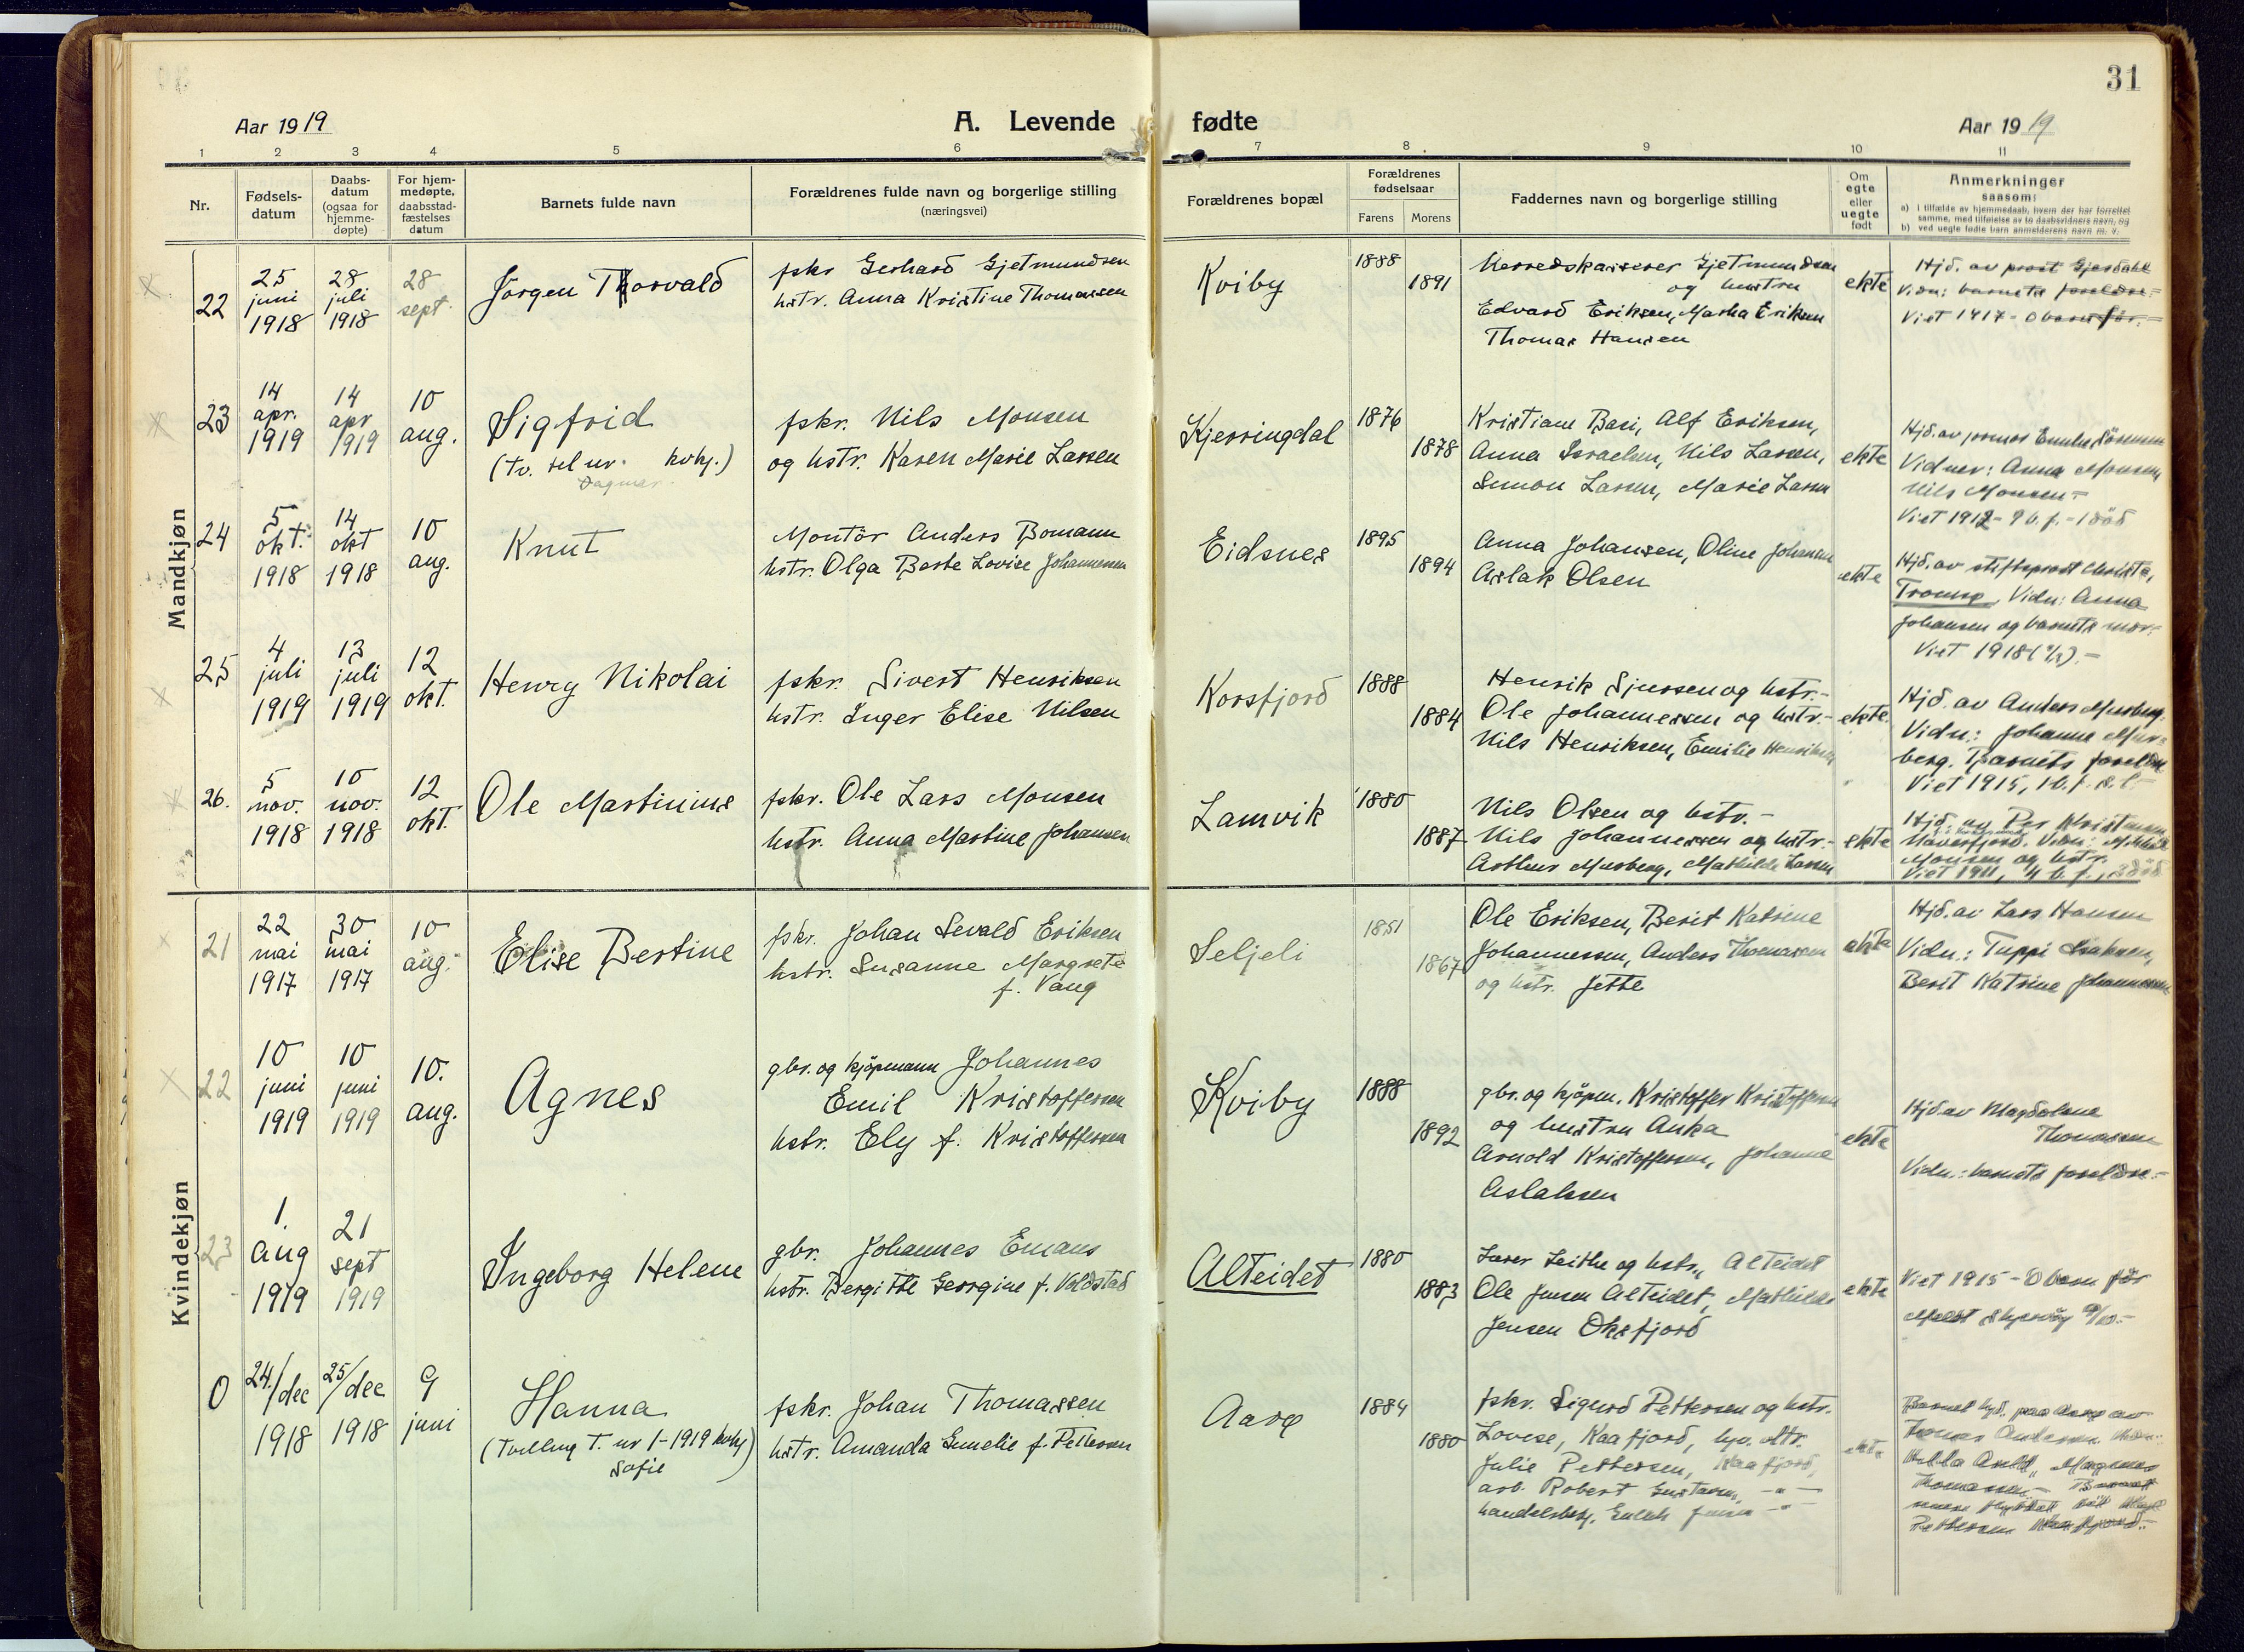 31
Aar 1919
A. Levende fødte
Aar 1919
1 2 3 4 5 6 7 8 9 10 11
Nr.
Fødsels-
datum
Daabs-
datum
(ogsaa for
hjemme-
døpte)
For hjem-
medøpte,
daabsstad-
fæstelses
datum
Barnets fulde navn
Forældrenes fulde navn og borgerlige stilling
(næringsvei)
Forældrenes bopæl
Forældrenes
fødselsaar
Farens Morens
Faddernes navn og borgerlige stilling
Om
egte
eller
uegte
født
Anmerkninger
saasom:
a) i tilfælde av hjemmedaab, hvem der har forrettet
samme, med tilføielse av to daabsvidners navn, og
b) ved uegte fødte barn anmelderens navn m. v.
Mandkjøn
22
25
juni
1918
28
juli
1918
28
sept.
Jörgen Thorvald
fskr Gerhard Gjetmundsen
hstr. Anna Kristine Thomassen
Kviby
1888
1891
Herredskasserer Gjetmundsen
og hustru
Edvard Eriksen, Marha Eriksen
Thomas Hansen
ekte
Hjd. av prost Gjerdahl
Vidn: barnets foreldre.
Viet 1917 - 0 barn før.
23
14
apr.
1919
14
apr
1919
10
aug.
Sigfrid
(tv. til nr. kvkj.)
Dagmar
fskr. Nils Monsen
og hstr. Karen Marie Larsen
Kjerringdal
1876
1878
Kristiane Basi, Alf Eriksen,
Anna Israelsen, Nils Larsen,
Simon Larsen, Marie Larsen
ekte
Hjd. av Sörensen
Vidner: Anna Monsen,
Nils Monsen
Viet 1912 - 9 b. f. - 1 död
24
5
okt.
1918
14
okt
1918
10
aug.
Knut
Montör Anders Bomann
hstr. Olga Berte Lovise Johannessen
Eidsnes
1895
1894
Anna Johansen, Oline Johansen
Aslak Olsen
ekte
Hjd. av stiftsprost
Tromsø, Vidn: Anna
Johansen og barnets mor.
Viet 1918
25
4
juli
1919
13
juli
1919
12
okt.
Henry Nikolai
fskr. Sivert Henriksen
hstr. Inger Elise Nilsen
Korsfjord
1888
1884
Henrik Sjursen og hstr.-
Ole Johannessen og hstr.-
Nils Henriksen, Emilie Henriksen
ekte.
Hjd. av Anders Mursberg.
Vidn: Johanne Murs-
berg. Barnets foreldre
Viet 1915, 1 b. f.
26.
5
nov.
1918
10
nov.
1918
12
okt.
Ole Martinius
fskr. Ole Lars Monsen
hstr. Anna Martine Johansen
Lamvik
1880
1887
Nils Olsen og hstr. -
Nils Johannessen og hstr.-
Arthur Mursberg, Mathilde Larsen
ekte
Hjd. av Per Kristensen
Vidn:
Monsen og hstr.
Viet 1911, 4 b. f.,
Kvindekjøn
21
22
mai
1917
30
mai
1917
10
aug.
Elise Bertine
fskr. Johan Sevald Eriksen
hstr. Susanne Margrete
f. Vang
Seljeli
1851
1867
Ole Eriksen, Berit Katrine
Johannessen, Anders Thomassen
og hstr. Jette
ekte
Hjd. av Lars Hansen
Vidn.: Tuppi Isaksen,
Berit Katrine Johannessen
22
10
juni
1919
10
juni
1919
10.
aug.
Agnes
gbr. og kjöpmann Johannes
Emil Kristoffersen
hstr. Ely f. Kristoffersen
Kviby
1888
1892
gbr. og kjöpm. Kristoffer Kristoffersen
og hustru Anka
Arnold Kristoffersen, Johanne
Aslaksen
ekte
Hjd. av Magdalene
Thomassen
Vidn.: barnets foreldre.-
23
1.
aug
1919
21
sept
1919
Ingeborg Helene
gbr. Johannes Emaus
hstr. Bergitte Georgine f. Voldstad
Alteidet
1880
1883
Lærer Leithe og hstr., Alteidet
Ole Jensen Alteidet, Mathilde
Jensen Oksfjord
ekte
Viet 1915 - 0 barn för
Meldt Skjervöy 9/10.-
0
24./dec
1918
25/dec
1918
9
juni
Hanna
(Tvilling t. nr 1-1919 kvkj)
Sofie
fskr. Johan Thomassen
hstr. Amanda Emelie f. Pettersen
Aarø
1884
1880
fskr. Sigurd Pettersen og hstr.
Lovise, Kaafjord,
Julie Pettersen, Kaafjord,
arb. Robert Gustavsen, - " -
handelsbetj. Jensen - " -
ekte
Barnet hjd. paa Aarø av
Thomassen
Pettersen Kaafjord.